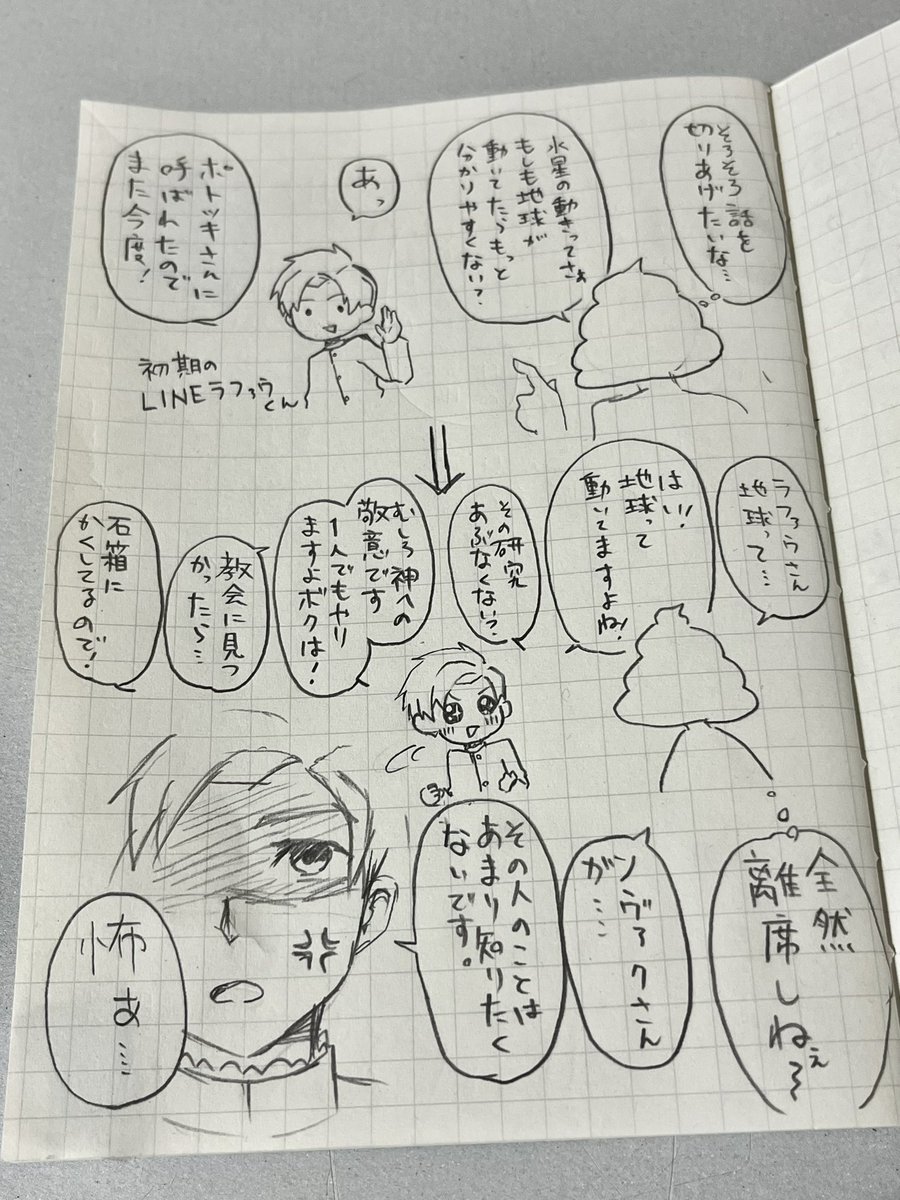 そろそろ話を
切りあげたいな…
水星の動きってさぁ
もしも地球が
動いてたらもっと
分かりやすくない?
あっ
ポトツキさんに
呼ばれたので
また今度!
初期の
LINEラファウ
くん
ラファウさん
地球って…
はい!
地球って
動いてますよね!
その研究
あぶなくない?
むしろ神への
敬意です
1人でもやり
ますよボクは!
教会に見つ
かったら…
石箱に
かくしてるので!
全然
離席しねぇ〜
ノヴァクさん
が…
その人のことは
あまり知りたく
ないです。
怖ぁ…